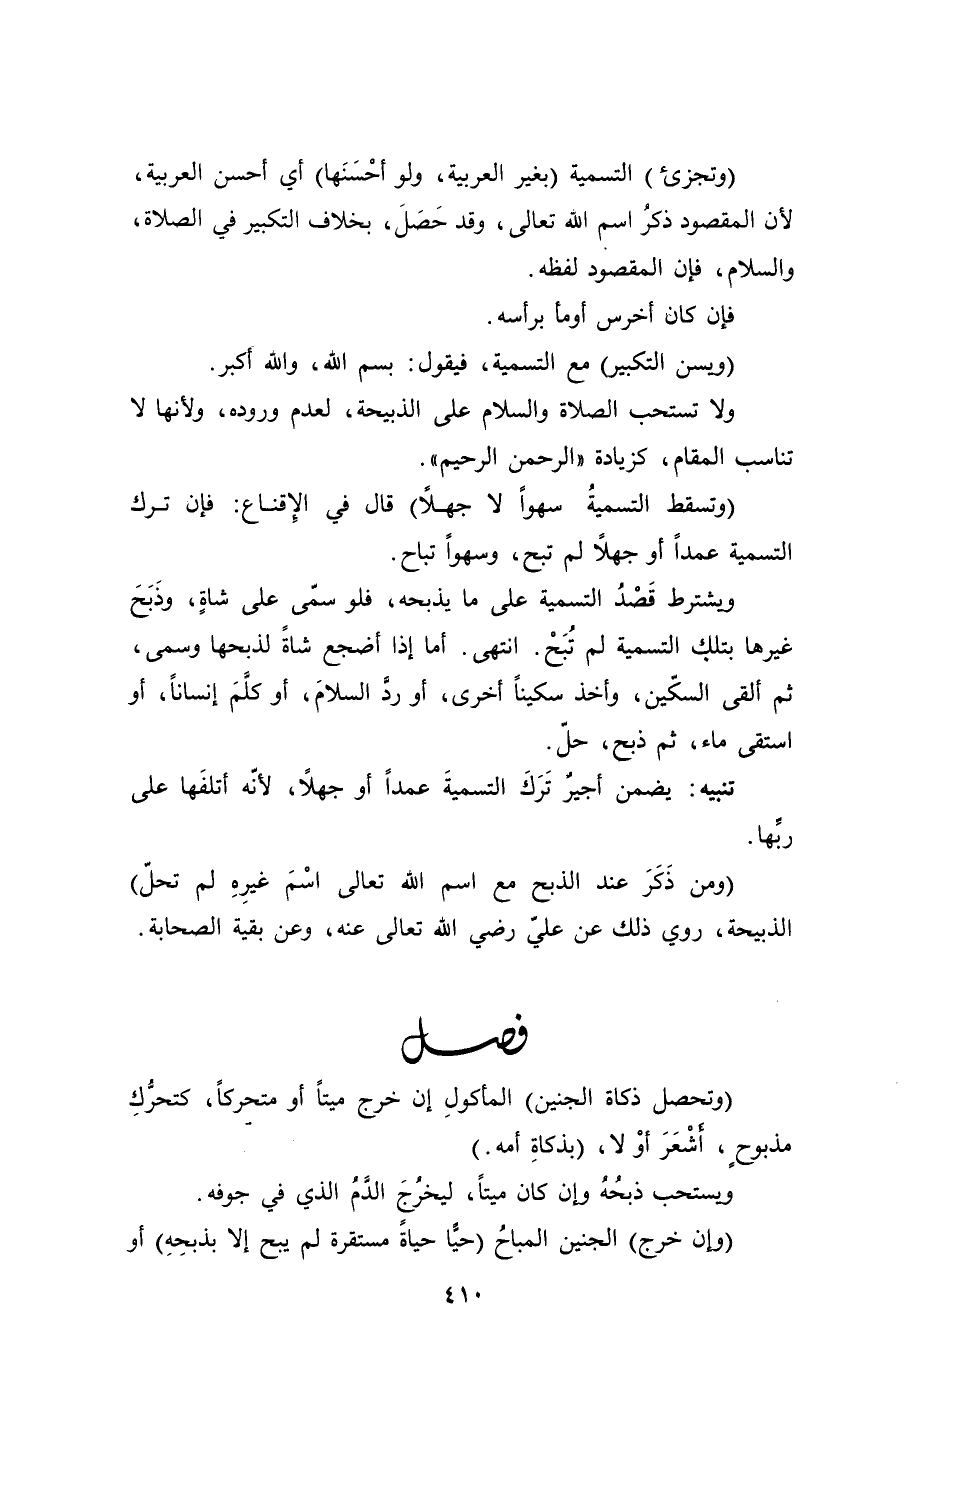 (وتجزئ) التسمية (بغير العربية، ولو أحْسَنَها) أي أحسن العربية،
لأن المقصود ذكرُ اسم الله تعالى، وقد حَصَلَ، بخلاف التكبير في الصلاة،
والسلام، فإن المقصود لفظه.
فإن كان أخرس أومأ برأسه.
(ويسن التكبير) مع التسمية، فيقول: بسم الله، والله أكبر.
ولا تستحب الصلاة والسلام على الذبيحة، لعدم وروده، ولأنها لا
تناسب المقام، كزيادة «الرحمن الرحيم».
(وتسقط التسميةُ سهواً لا جهلًا) قال في الإِقناع: فإن ترك
التسمية عمداً أو جهلًا لم تبح، وسهواً تباح.
ويشترط قَصْدُ التسمية على ما يذبحه، فلو سمّى على شاةٍ، وذَبَحَ
غيرها بتلكِ التسمية لم تُبَحْ. انتهى. أما إذا أضجع شاةً لذبحها وسمى،
ثم ألقى السكّين، وأخذ سكيناً أخرى، أو ردَّ السلامَ، أو كلَّمَ إنساناً، أو
استقى ماء، ثم ذبح، حلّ.
تنبيه: يضمن أجيرٌ تَرَكَ التسميةَ عمداً أو جهلًا، لأنّه أتلفَها على
ربِّها.
(ومن ذَكَرَ عند الذبح مع اسم الله تعالى اسْمَ غيرِهِ لم تحلّ)
الذبيحة، روي ذلك عن عليّ رضي الله تعالى عنه، وعن بقية الصحابة.
فصل
(وتحصل ذكاة الجنين) المأكولِ إن خرج ميتاً أو متحركاً، كتحرُّكِ
مذبوحٍ، أَشْعَرَ أوْ لا، (بذكاةِ أمه.)
ويستحب ذبحُهُ وإن كان ميتاً، ليخرُجَ الدَّمُ الذي في جوفه.
(وإن خرج) الجنين المباحُ (حيًّا حياةً مستقرة لم يبح إلا بذبحِهِ) أو
٤١٠